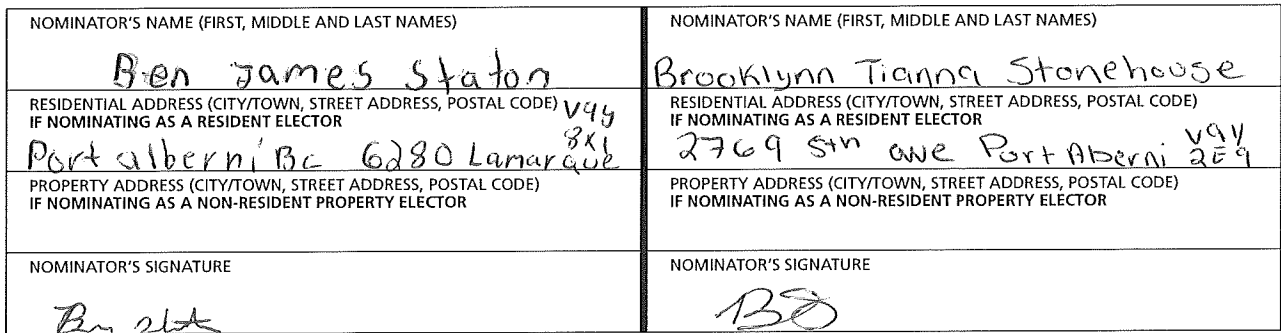 NOMINATOR'S NAME (FIRST, MIDDLE AND LAST NAMES)
Ben James Staton
RESIDENTIAL ADDRESS (CITY/TOWN, STREET ADDRESS, POSTAL CODE) V9Y
IF NOMINATING AS A RESIDENT ELECTOR
8X1
Port alberni Bc 6280 Lamarque
PROPERTY ADDRESS (CITY/TOWN, STREET ADDRESS, POSTAL CODE)
IF NOMINATING AS A NON-RESIDENT PROPERTY ELECTOR
NOMINATOR'S SIGNATURE
NOMINATOR'S NAME (FIRST, MIDDLE AND LAST NAMES)
Brooklynn Tianna Stonehouse
RESIDENTIAL ADDRESS (CITY/TOWN, STREET ADDRESS, POSTAL CODE)
IF NOMINATING AS A RESIDENT ELECTOR
V9Y
2769 5th ave Port Aberni 2E9
PROPERTY ADDRESS (CITY/TOWN, STREET ADDRESS, POSTAL CODE)
IF NOMINATING AS A NON-RESIDENT PROPERTY ELECTOR
NOMINATOR'S SIGNATURE